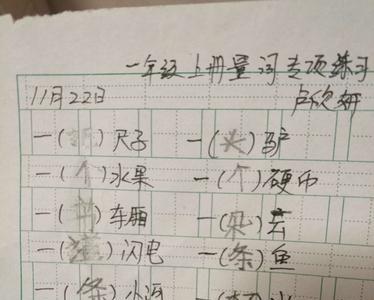 一年级上册量词专项练习
11月22日 卢欣妍
一( )尺子 一(头)驴
一(个)水果 一(个)硬币
一(节)车厢 一(朵)云
一( )闪电 一(条)鱼
一(条)小河 一( )